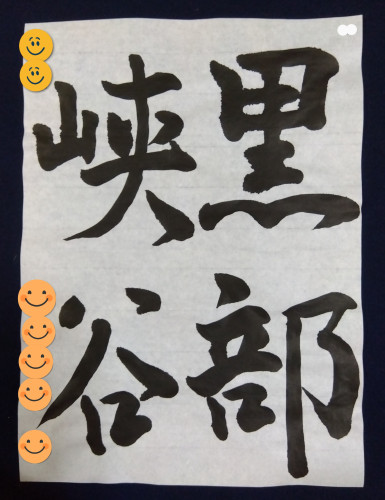 黒部
峡谷